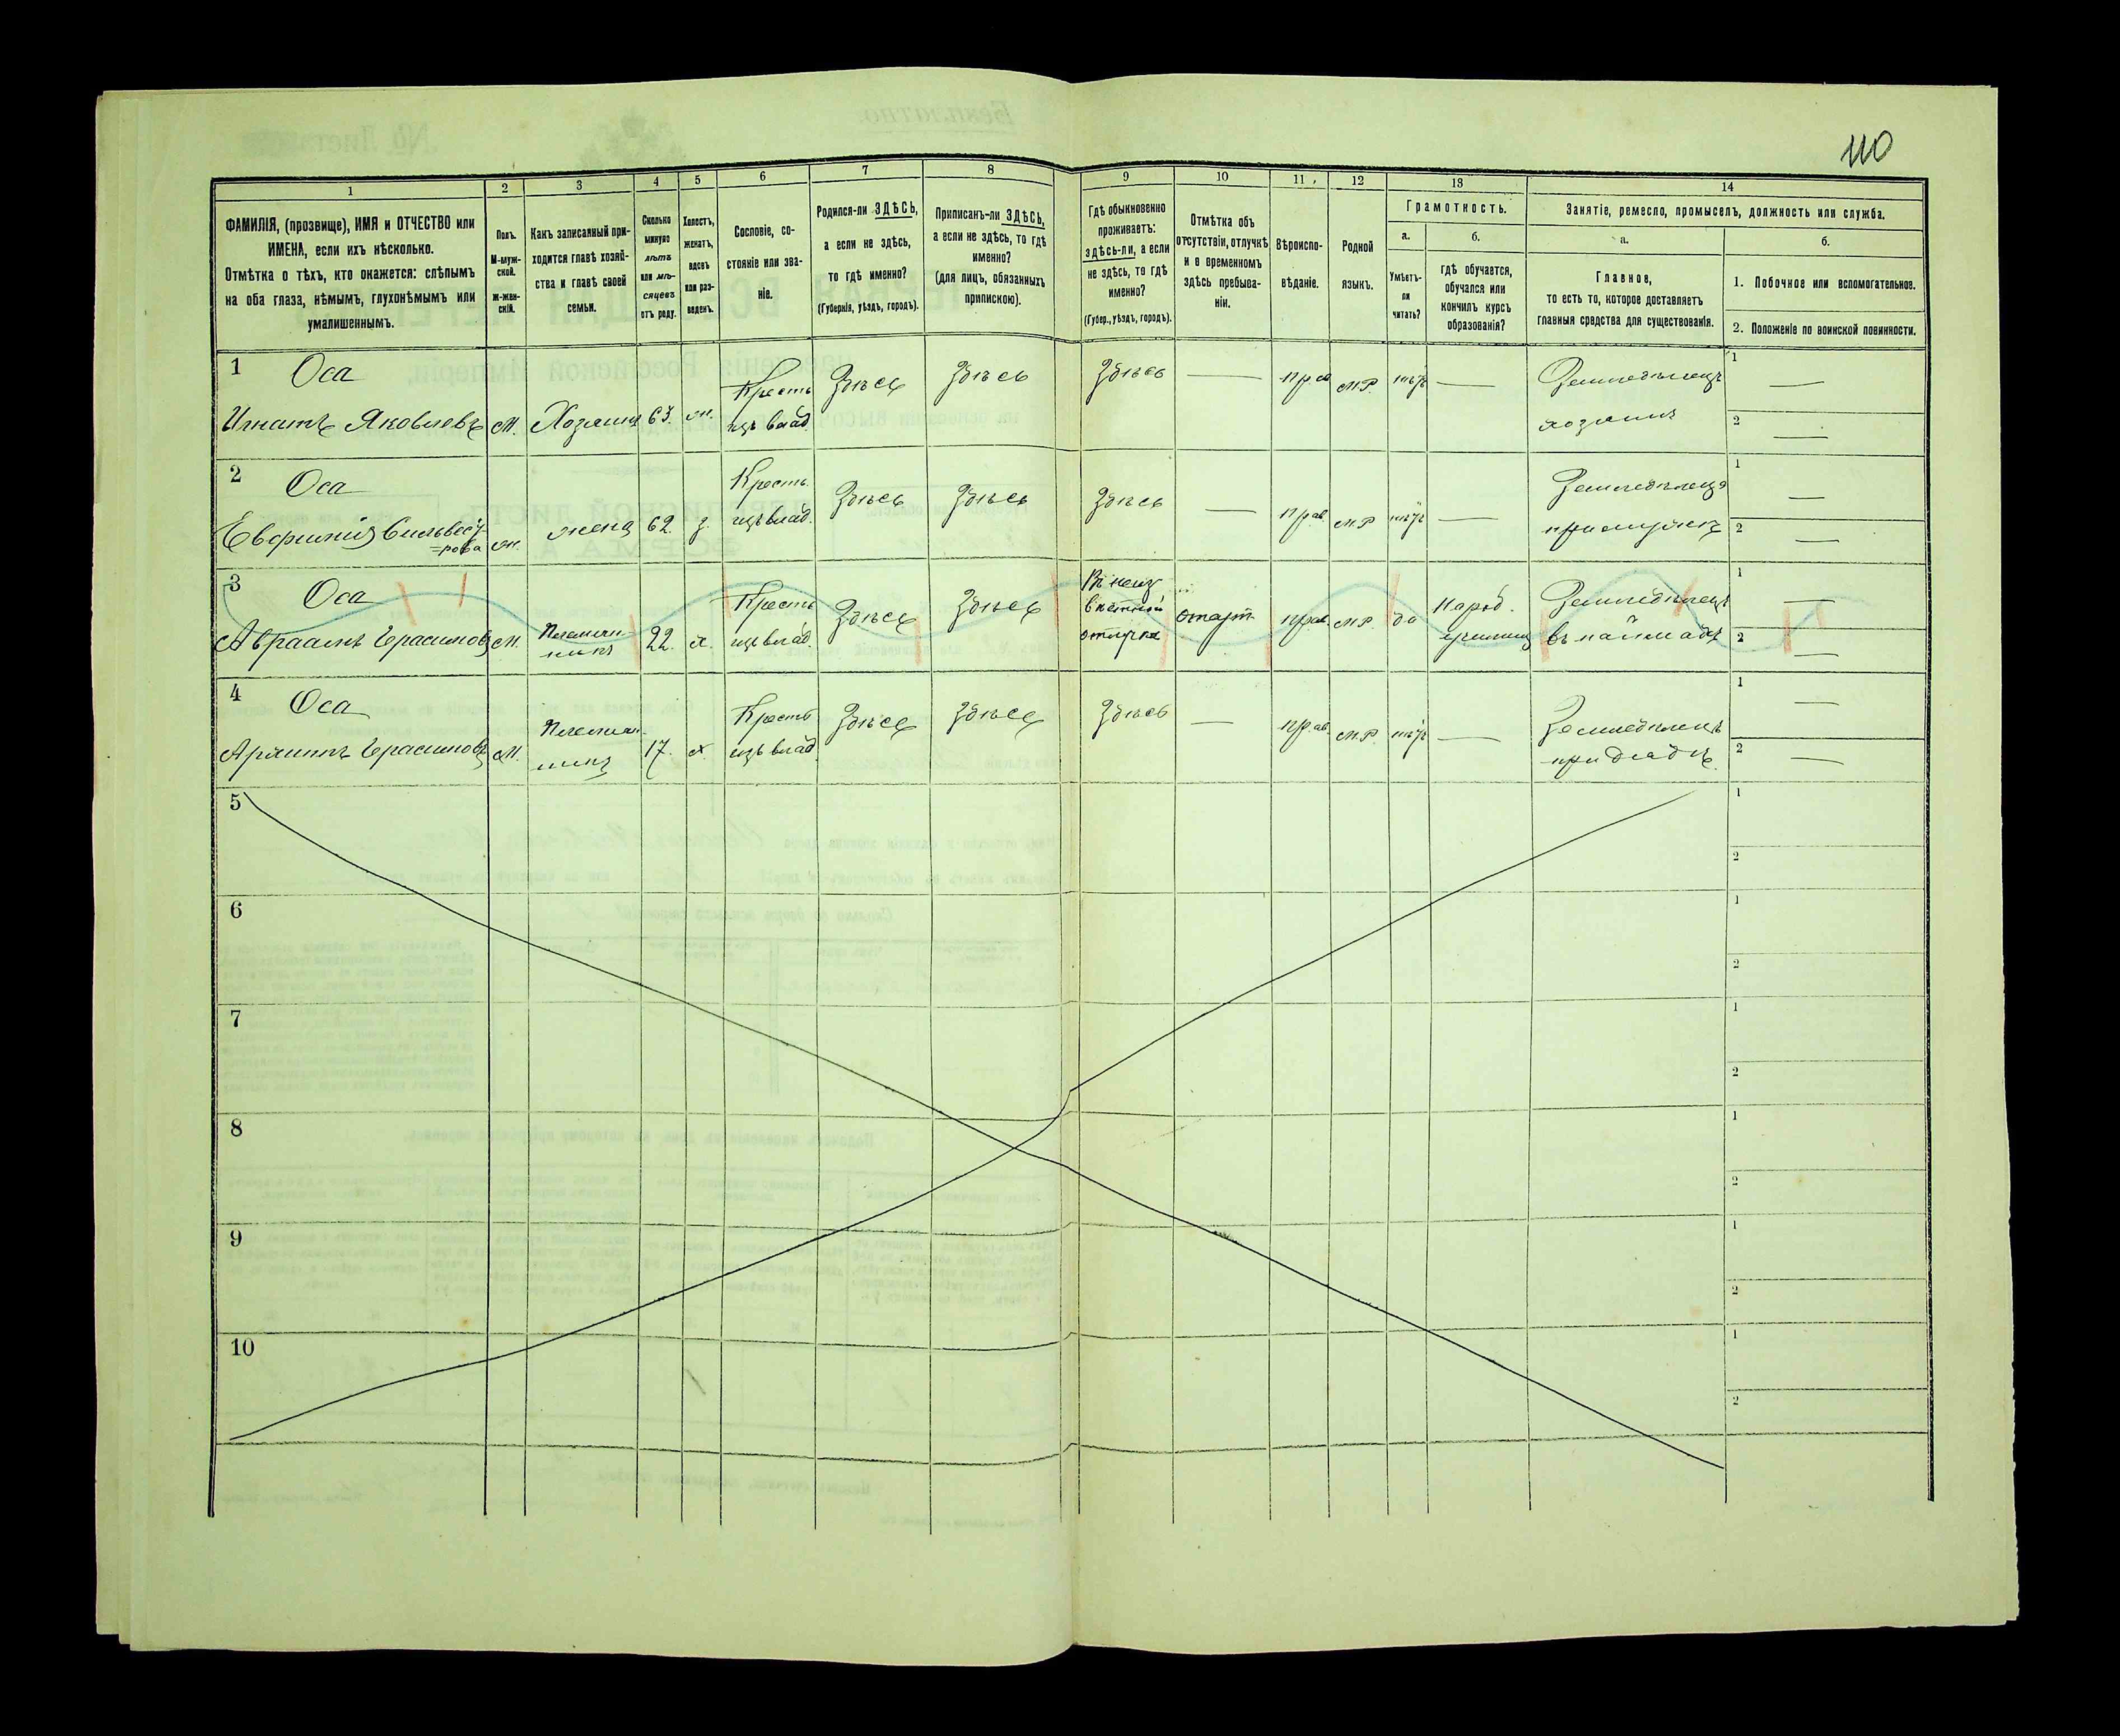 110
1 2 3 4 5 6 7 8 9 10 11 12 13 14
ФАМИЛІЯ, (прозвище), ИМЯ и ОТЧЕСТВО или
ИМЕНА, если ихъ нѣсколько.
Отмѣтка о тѣхъ, кто окажется: слѣпымъ
на оба глаза, нѣмымъ, глухонѣмымъ или
умалишеннымъ.
Полъ.
М-муж-
ской.
Ж-жен-
скій.
Какъ записанный при-
ходится главѣ хозяй-
ства и главѣ своей
семьи.
Сколько
минуло
лѣтъ
или мѣ-
сяцевъ
отъ роду.
Холостъ,
женатъ,
вдовъ
или раз-
веденъ.
Сословіе, со-
стояніе или зва-
ніе.
Родился-ли ЗДѢСЬ,
а если не здѣсь,
то гдѣ именно?
(Губернія, уѣздъ, городъ).
Приписанъ-ли ЗДѢСЬ,
а если не здѣсь, то гдѣ
именно?
(для лицъ, обязанныхъ
припискою).
Гдѣ обыкновенно
проживаетъ:
здѣсь-ли, а если
не здѣсь, то гдѣ
именно?
(Губер., уѣздъ, городъ).
Отмѣтка объ
отсутствіи, отлучкѣ
и о временномъ
здѣсь пребыва-
ніи.
Вѣроиспо-
вѣданіе.
Родной
языкъ.
Грамотность.
а. б.
Умѣетъ-
ли
читать?
гдѣ обучается,
обучался или
кончилъ курсъ
образованія?
Занятіе, ремесло, промыселъ, должность или служба.
а. б.
Главное,
то есть то, которое доставляетъ
главныя средства для существованія.
1. Побочное или вспомогательное.
2. Положеніе по воинской повинности.
1 Оса Кресть Здѣсь Здѣсь Здѣсь — прав М.Р. нѣтъ — Земледѣлецъ 1 —
Игнатъ Яковлевъ М. Хозяинъ 63 ж. изъ влад. хозяинъ 2 —
2 Оса Кресть Здѣсь Здѣсь Здѣсь — прав. М.Р. нѣтъ — Земледѣлецъ 1 —
Евфимія Сильвест-
=рова ж. жена 62 з. изъ влад. при мужѣ 2 —
3 Оса Кресть Здѣсь Здѣсь отлуч. прав М.Р. да Народ. Земледѣлецъ 1 —
Авраамъ Герасимовъ М. Племян-
никъ 22. х. изъ влад. отпуск училищ въ наймахъ 2 —
4 Оса Кресть Здѣсь Здѣсь Здѣсь — прав М.Р. нѣтъ — Земледѣлецъ 1 —
Архипъ Герасимовъ М. Племян-
никъ 17. х. изъ влад при дядѣ 2 —
5 1
2
6 1
2
7 1
2
8 1
2
9 1
2
10 1
2